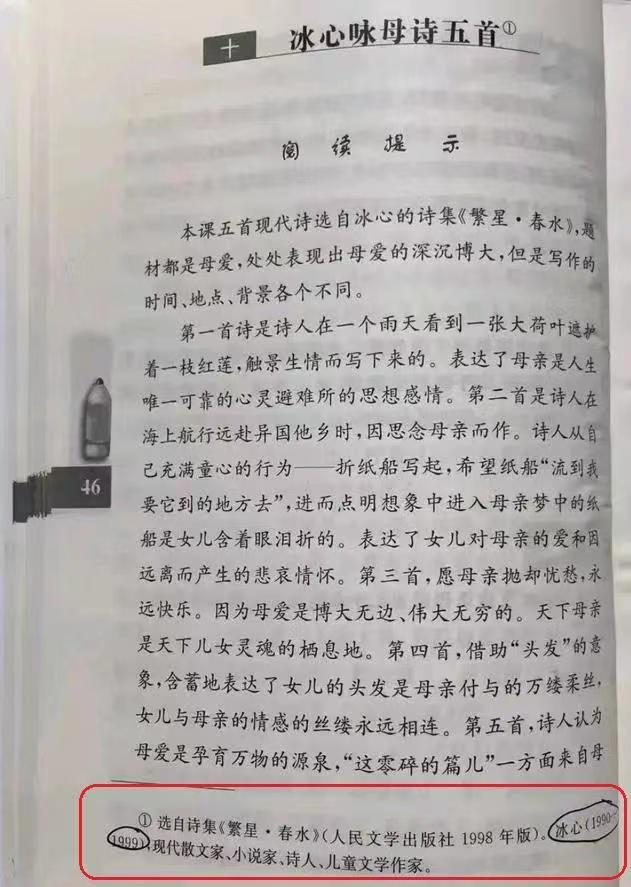 十 冰心咏母诗五首①
阅读提示
本课五首现代诗选自冰心的诗集《繁星·春水》,题
材都是母爱,处处表现出母爱的深沉博大,但是写作的
时间、地点、背景各个不同。
第一首诗是诗人在一个雨天看到一张大荷叶遮护
着一枝红莲,触景生情而写下来的。表达了母亲是人生
唯一可靠的心灵避难所的思想感情。第二首是诗人在
海上航行远赴异国他乡时,因思念母亲而作。诗人从自
己充满童心的行为——折纸船写起,希望纸船“流到我
要它到的地方去”,进而点明想象中进入母亲梦中的纸
46
船是女儿含着眼泪折的。表达了女儿对母亲的爱和因
远离而产生的悲哀情怀。第三首,愿母亲抛却忧愁,永
远快乐。因为母爱是博大无边、伟大无穷的。天下母亲
是天下儿女灵魂的栖息地。第四首,借助“头发”的意
象,含蓄地表达了女儿的头发是母亲付与的万缕柔丝,
女儿与母亲的情感的丝缕永远相连。第五首,诗人认为
母爱是孕育万物的源泉,“这零碎的篇儿”一方面来自母
① 选自诗集《繁星·春水》(人民文学出版社 1998 年版)。冰心(1990—
1999),现代散文家、小说家、诗人、儿童文学作家。